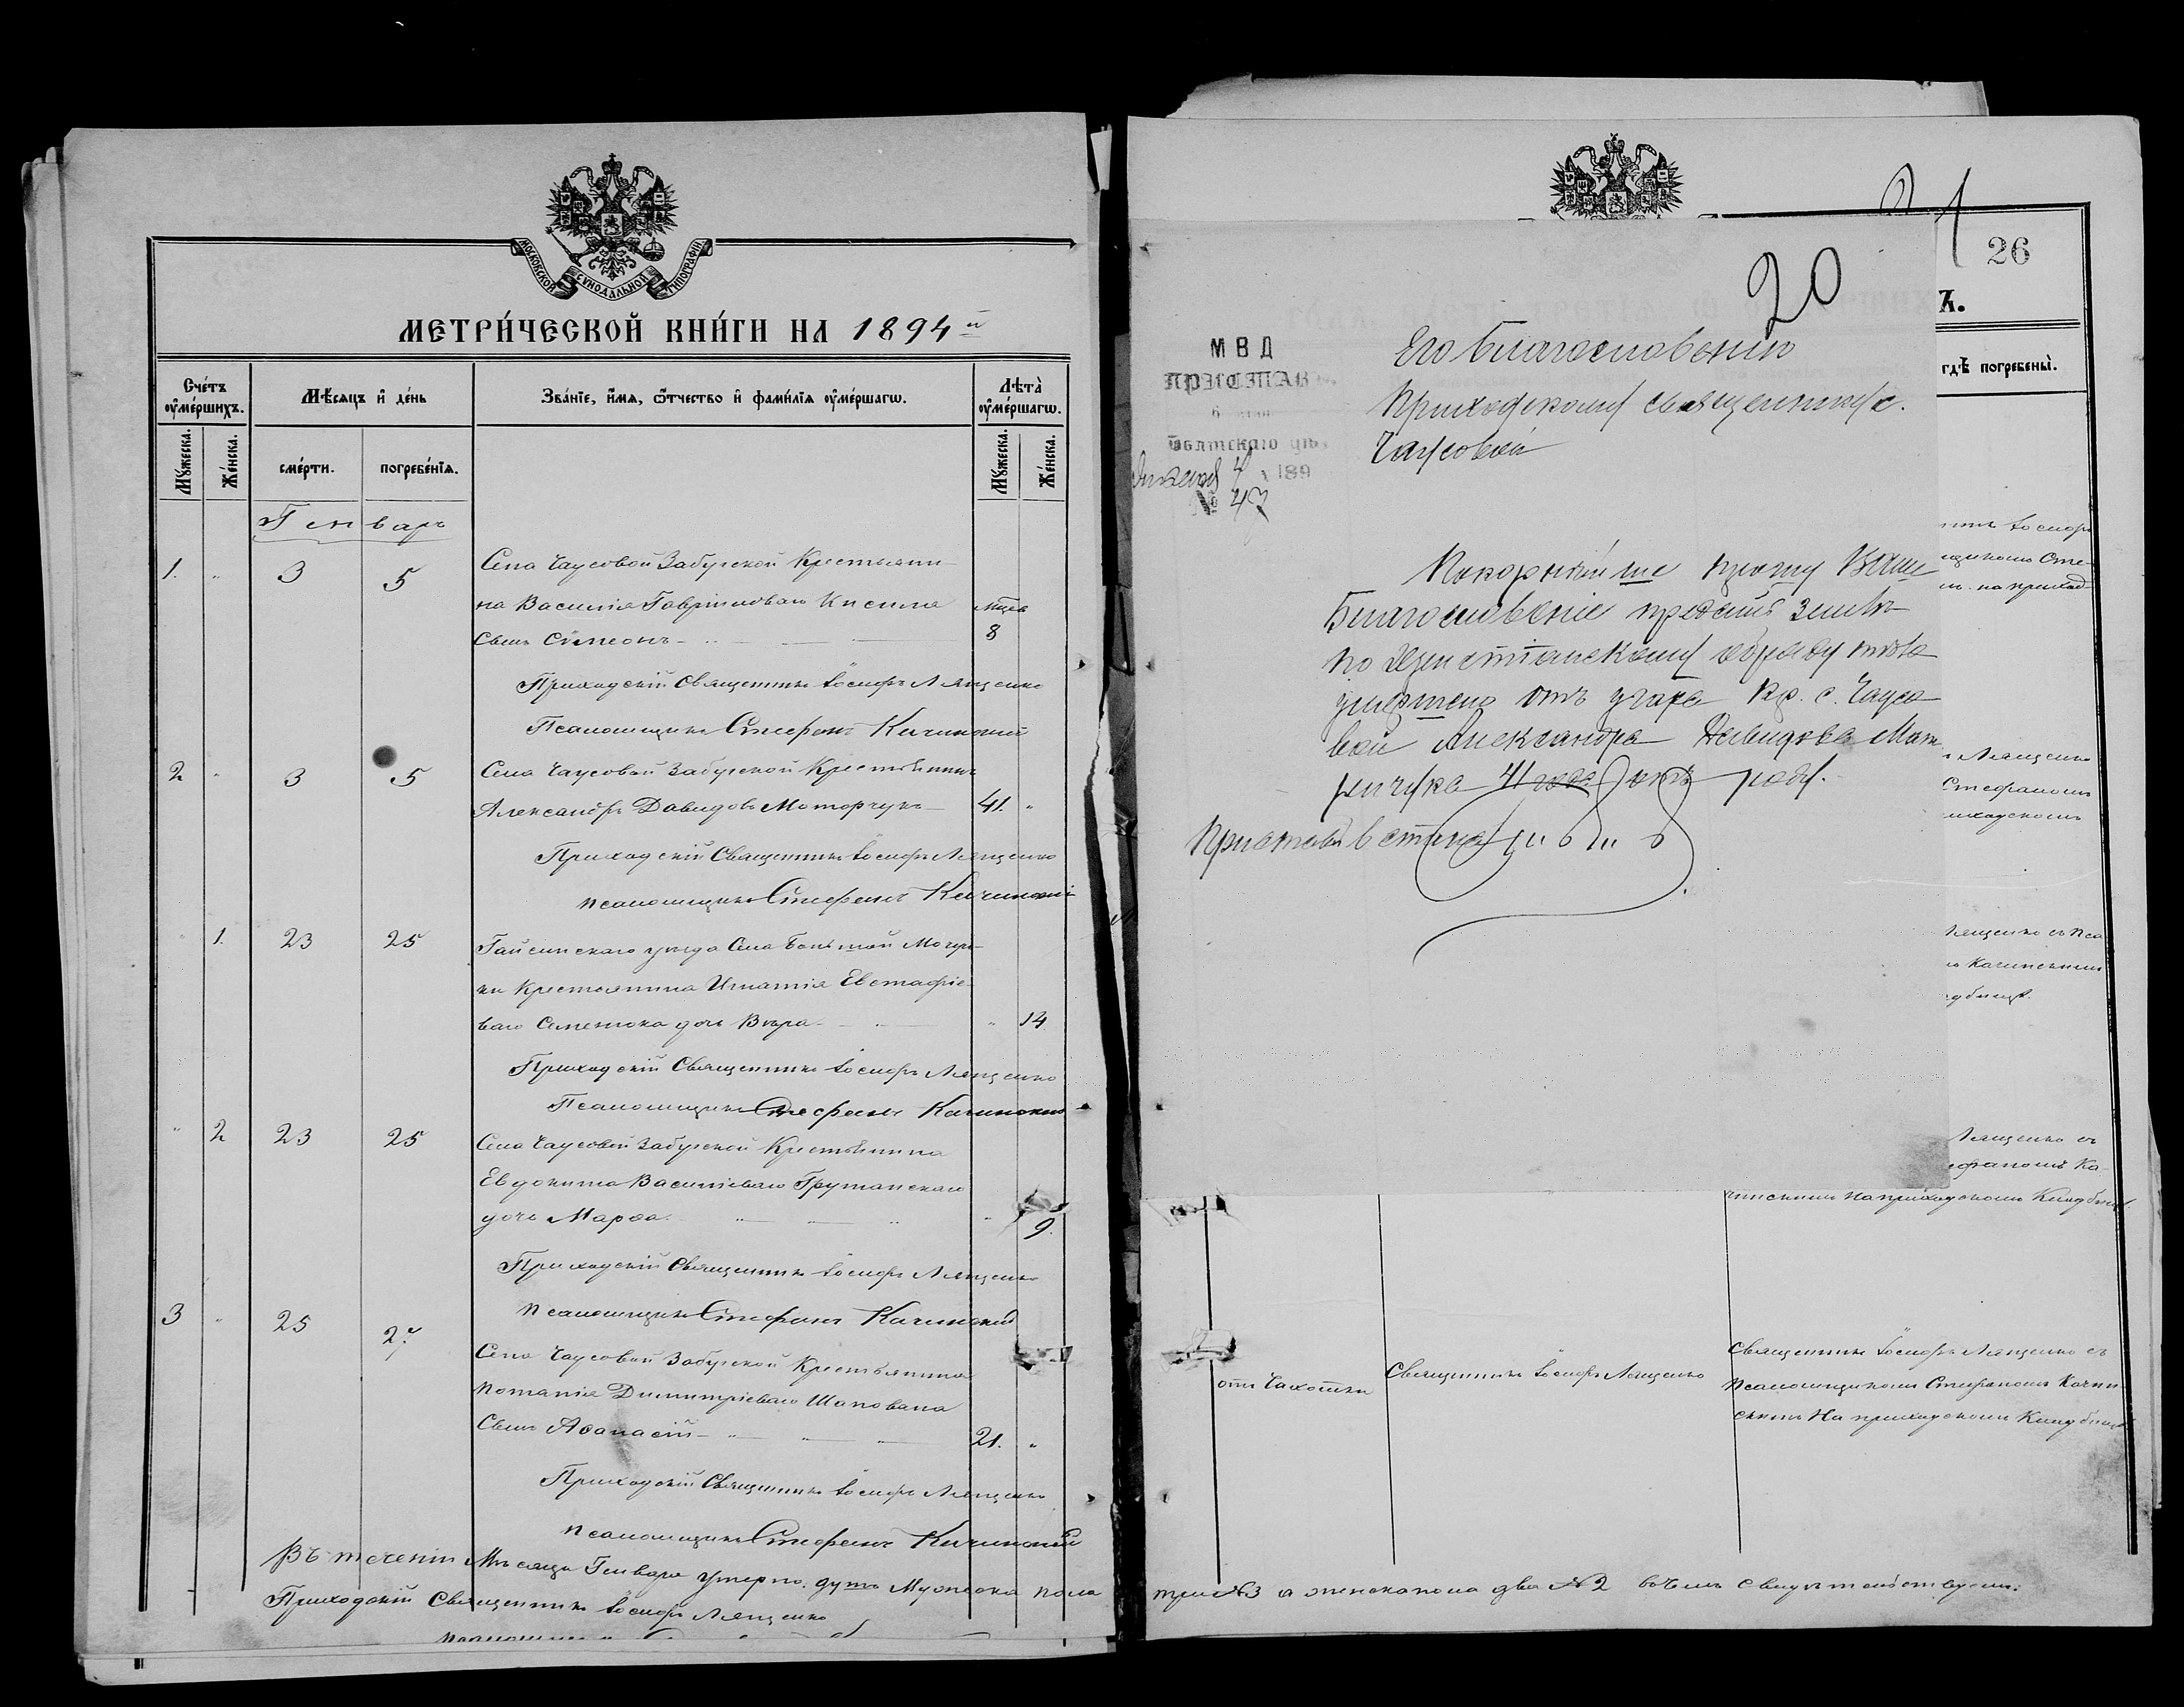 МОСКОВСКОЙ СѴНОДАЛЬНОЙ ТИПОГРАФІИ
МЕТРИ́ЧЕСКОЙ КНИ́ГИ НА 1894й
Сче́тъ ᲂумершихъ.
Мѣ́сяцъ и де́нь
Зва́нїе, и́мѧ, ѻ҆́тчество и фами́лїѧ ᲂуме́ршагѡ.
Лѣта̀ ᲂуме́ршагѡ.
Мꙋ́жеска.
Же́нска.
сме́рти.
погребе́нїѧ.
Мꙋ́жеска.
Же́нска.
Генварь
1. " 3 5 Села Чаусовой Забугской Крестьяни-
на Василія Гавріилова Кисиля мѣсяц
сынъ Симеонъ 8
Приходскій Священникъ Іосифъ Лященко
Псаломщикъ Стефанъ Качинскій
2 " 3 5 Села Чаусовой Забугской Крестьянинъ
Александръ Давидовъ Моторчукъ 41. "
Приходскій Священникъ Іосифъ Лященко
Псаломщикъ Стефанъ Качинскій
" 1. 23 25 Гайсинскаго уѣзда Села Большой Мочул-
ки Крестьянина Игнатія Евстафіе-
ваго Семенюка дочь Вѣра " 14
Приходскій Священникъ Іосифъ Лященко
Псаломщикъ Стефанъ Качинскій
" 2 23 25 Села Чаусовой Забугской Крестьянина
Евдокима Василіеваго Грушанскаго
дочь Марѳа " 9.
Приходскій Священникъ Іосифъ Лященко
Псаломщикъ Стефанъ Качинскій
3 " 25 27 Села Чаусовой Забугской Крестьянина
Потапія Димитріеваго Шаповала
сынъ Аѳанасій 21. "
Приходскій Священникъ Іосифъ Лященко
Псаломщикъ Стефанъ Качинскій
Въ теченіи Мѣсяца Генваря умерло душъ Мужеска пола
три №3 а женска пола два №2 въ чемъ свидѣтельствуемъ:
Приходскій Священникъ Іосифъ Лященко
21
26
20
гдѣ погребены̀.
МВД
ПРИСТАВ
Балтскаго уѣз
4 189
№ 47
Его Благословенію
Приходскому священнику с.
Чаусовой
Покорнѣйше прошу Ваше
Благословеніе предать землѣ
по христіанскому обряду тѣло
умершего отъ угара кр. с. Чаусо-
вой Александра Давидова Мот
рничука 41 года роду.
Приставъ 6 стана
Лященко
Стефаномъ
Лященко съ Пса
Качинскимъ
Лященко съ
чинскимъ На приходскомъ Кладбищѣ
отъ Чахотки
Священникъ Іосифъ Лященко
Священникъ Іосифъ Лященко съ
Псаломщикомъ Стефаномъ Качин-
скимъ На приходскомъ Кладбищѣ